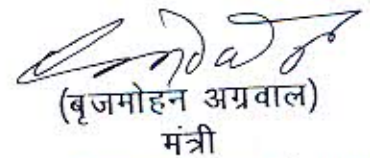 (बृजमोहन अग्रवाल)
मंत्री